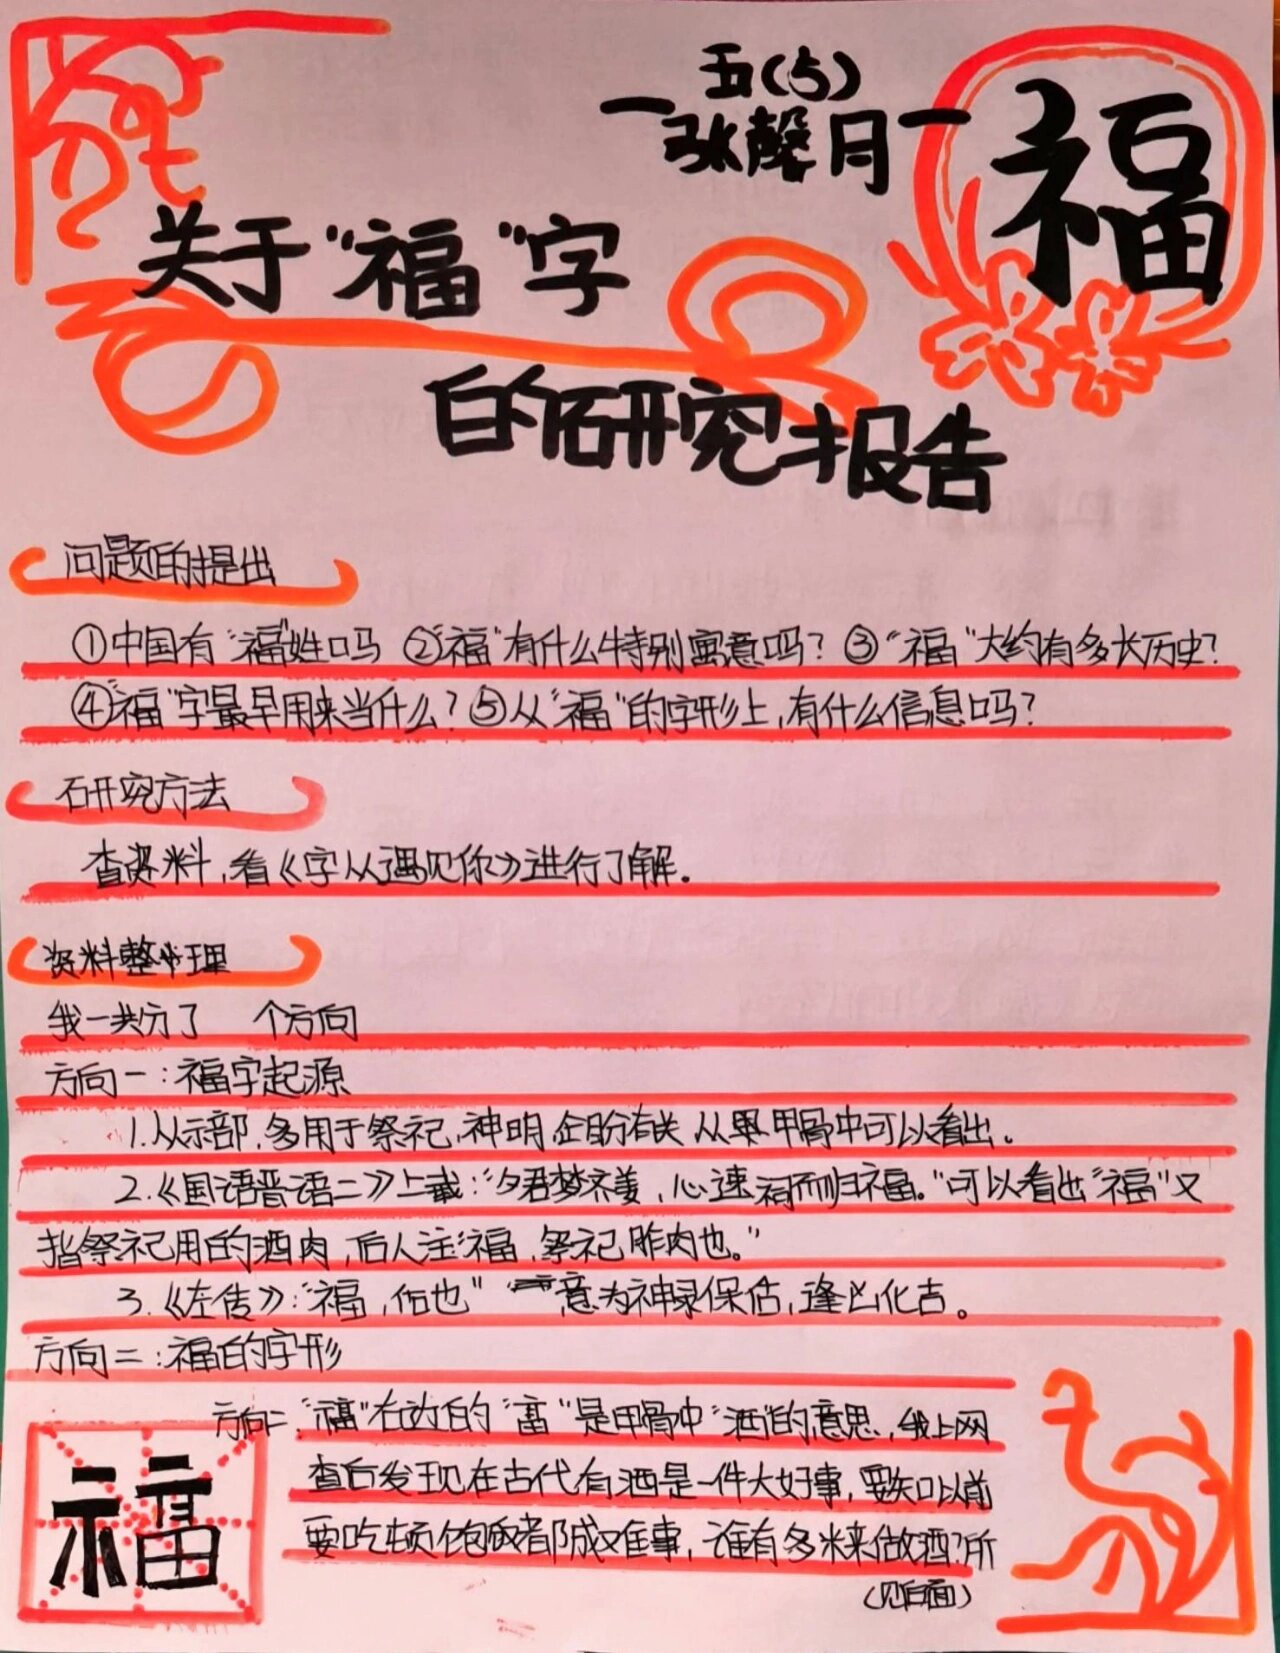 五(5)
张馨月
福
关于“福”字
的研究报告
问题的提出
①中国有“福”姓吗 ②“福”有什么特别寓意吗？③“福”大约有多长历史？
④“福”字最早用来当什么？⑤从“福”的字形上，有什么信息吗？
研究方法
查资料，看《字从遇见你》进行了解。
资料整理
我一共分了 个方向
方向一：福字起源
1.从示部，多用于祭祀，神明，企盼有关 从 甲骨中可以看出。
2.《国语晋语二》上载：“夕君梦齐姜，心速祠而归福。”可以看出“福”又
指祭祀用的酒肉，后人注“福，祭祀胙肉也。”
3.《左传》：“福，佑也” 意为神录保佑，逢凶化吉。
方向二：福的字形
方向二：“福”右边的“畐”是甲骨中“酒”的意思，我上网
查后发现在古代有酒是一件大好事，要知以前
要吃顿饱饭都成难事，谁有多米来做酒？所
(见白面)
福